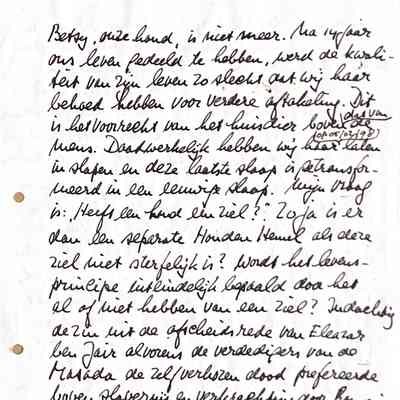 Betsy, onze hond, is niet meer. Na 14 jaar
ons leven gedeeld te hebben, werd de kwali-
teit van zijn leven zo slecht dat wij haar
behoed hebben voor verdere aftakeling. Dit
is het voorrecht van het huisdier boven dat van de
mens. Daadwerkelijk hebben wij haar laten
in slapen en deze laatste slaap is getransfor-
meerd in een eeuwige slaap. Mijn vraag
is: "Heeft een hond een ziel?" Zo ja is er
dan een separate Honden Hemel als deze
ziel niet sterfelijk is? Wordt het levens-
principe uiteindelijk bepaald door het
al of niet hebben van een ziel? Indachtig
de zin uit de afscheidsrede van Eleazar
ben Jair alvorens de verdedigers van de
Masada de zelfverkozen dood prefereerde
boven slavernij en verkrachting door